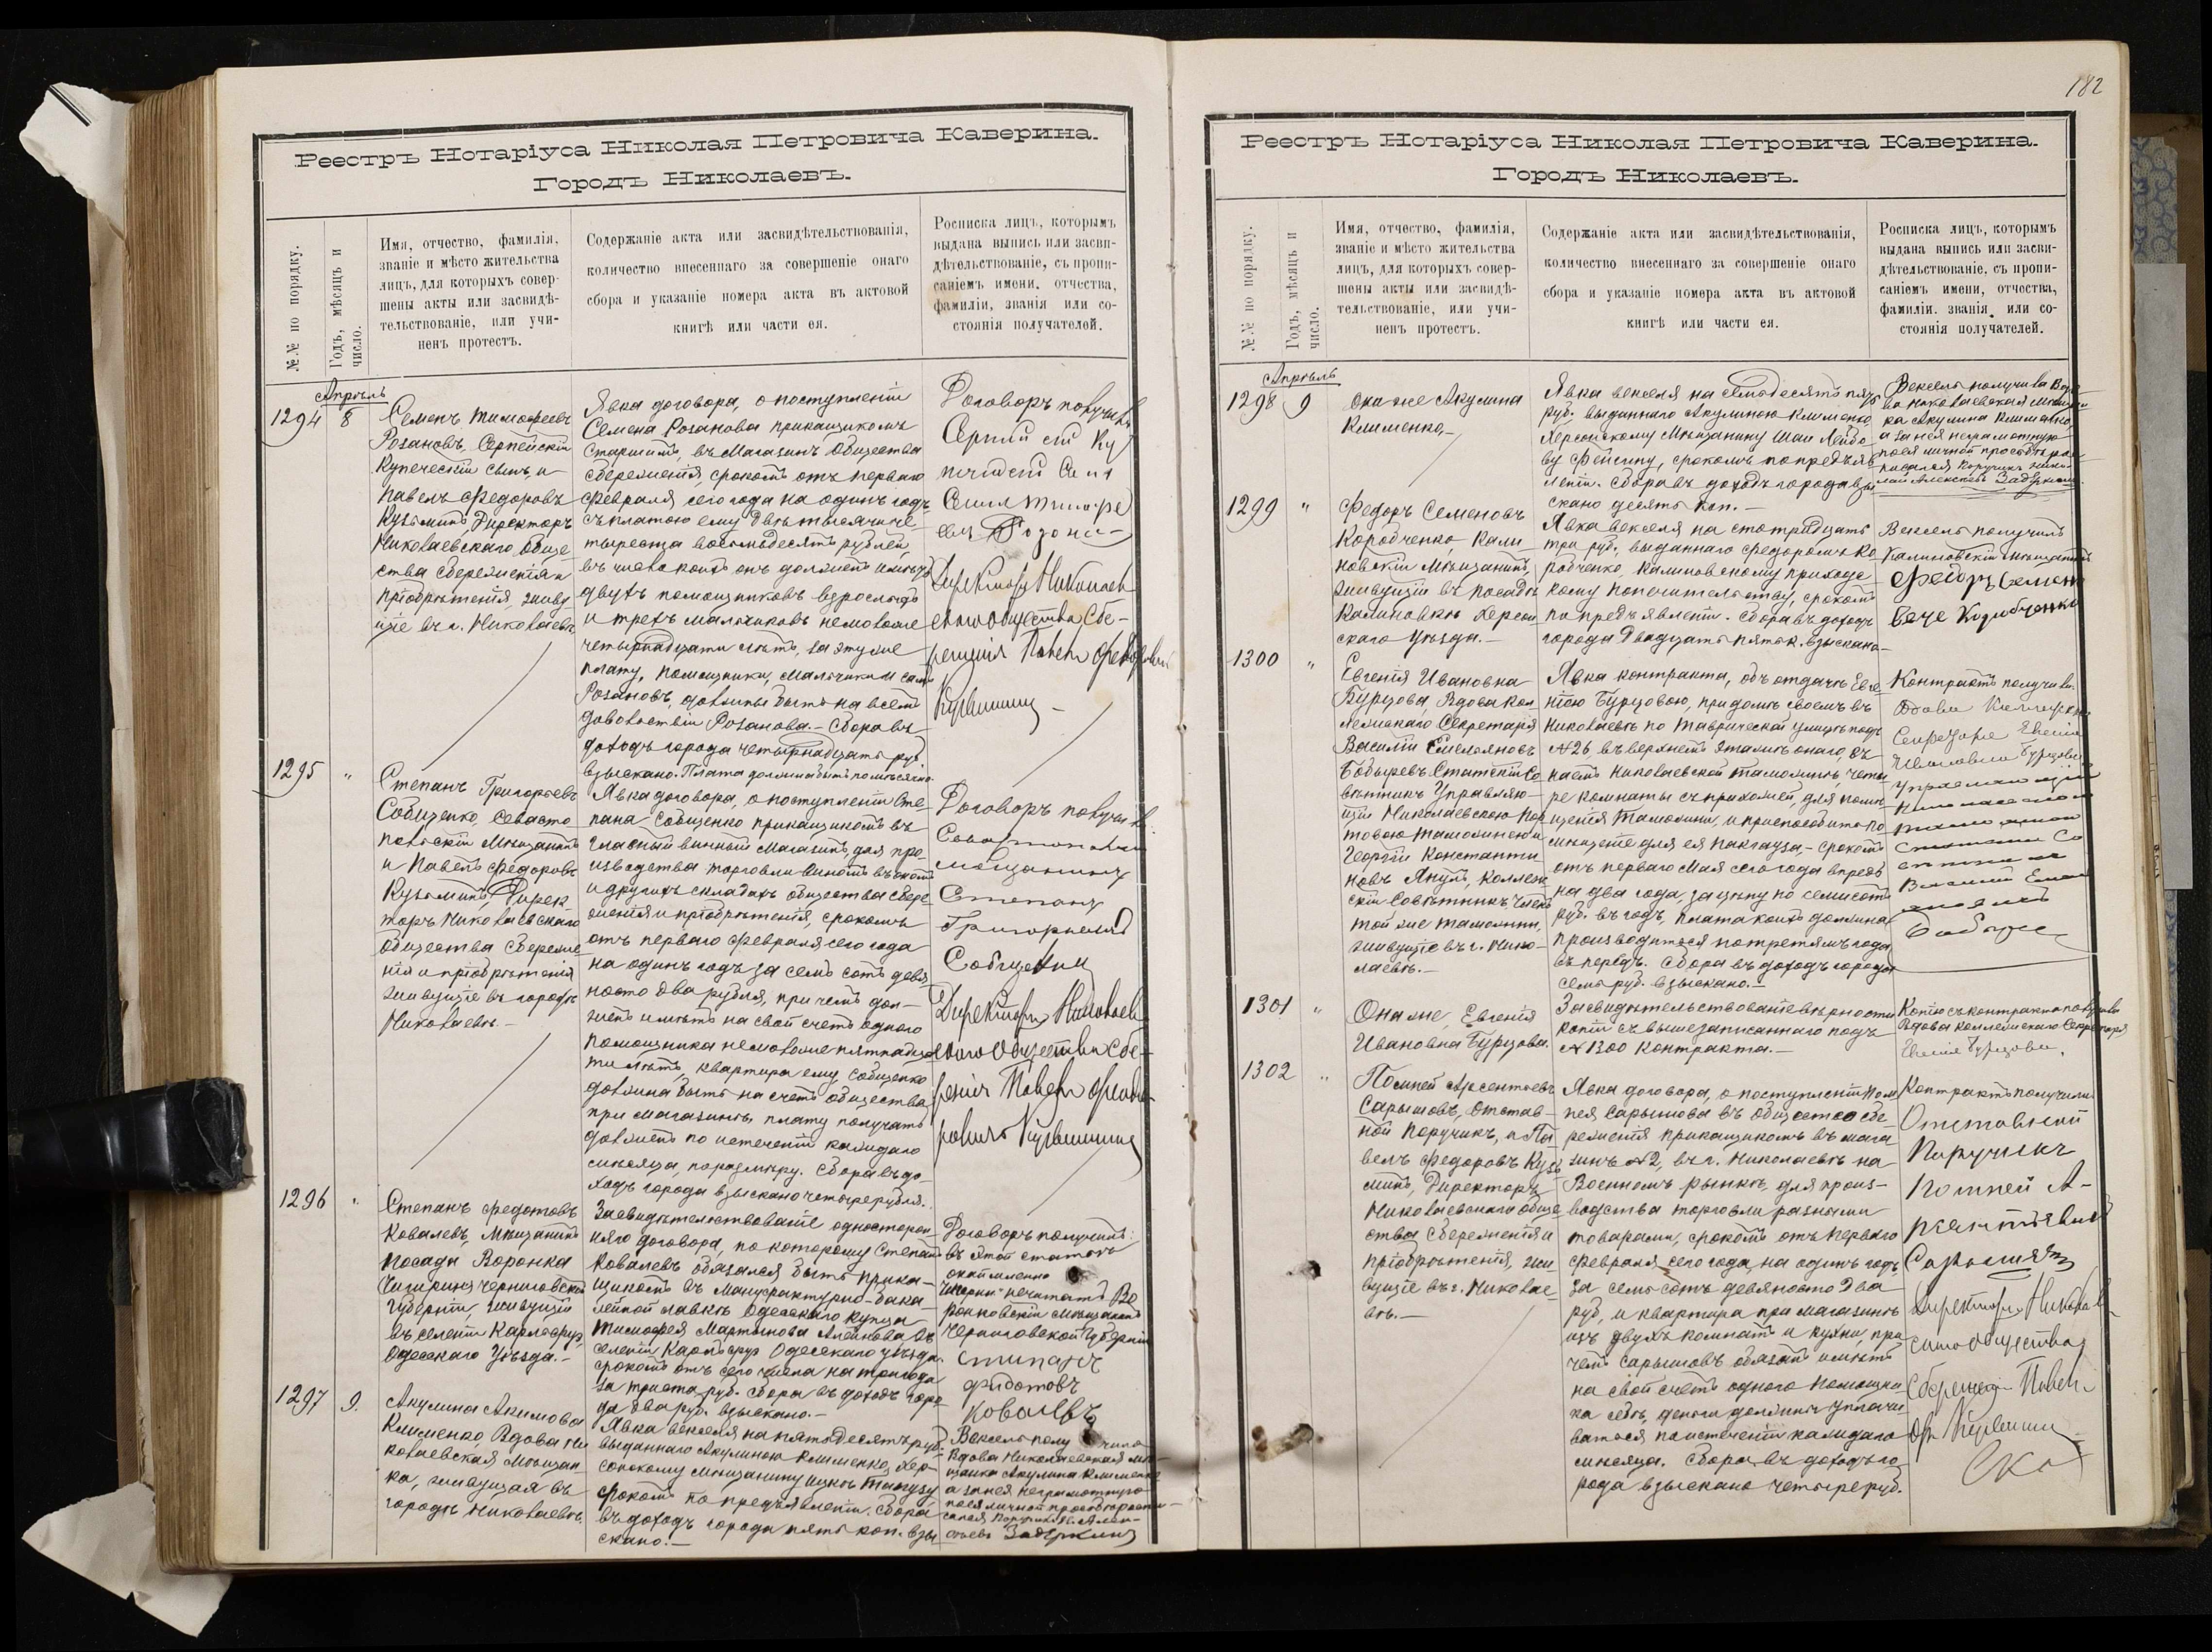 Реестръ Нотаріуса Николая Петровича Каверина.
Городъ Николаевъ.
№.№ по порядку.
Годъ, мѣсяцъ и
число.
Имя, отчество, фамилія,
званіе и мѣсто жительства
лицъ, для которыхъ совер-
шены акты или засвидѣ-
тельствованіе, или учи-
ненъ протестъ.
Содержаніе акта или засвидѣтельствованія,
количество внесеннаго за совершеніе онаго
сбора и указаніе номера акта въ актовой
книгѣ или части ея.
Росписка лицъ, которымъ
выдана выпись или засви-
дѣтельствованіе, съ пропи-
саніемъ имени, отчества,
фамиліи, званія или со-
стоянія получателей.
Апрѣль
1294
8
Семенъ Тимофеевъ
Розановъ, Серпейскій
Купеческій сынъ, и
Павелъ Федоровъ
Кузьминъ, Директоръ
Николаевскаго Обще-
ства сбереженія и
пріобрѣтенія, живу-
щіе въ г. Николаевѣ
Явка договора, о поступленіи
Семена Розанова прикащикомъ
старшимъ, въ Магазинъ Общества
сбереженія, срокомъ отъ перваго
февраля сего года на одинъ годъ
съ платою ему двѣ тысячи че-
тыреста восемьдесятъ рублей,
въ числе коихъ онъ долженъ имѣть
двухъ помощниковъ взрослыхъ
и трехъ мальчиковъ не моложе
четырнадцати лѣтъ, за эту же
плату, помощники, мальчики и самъ
Розановъ, должны быть на всемъ
довольствіи Розанова. - Сбора въ
доходъ города четырнадцать руб
взыскано. Плата должна быть помѣсячно.
Договоръ получилъ
Директоръ Николаев-
скаго Общества Сбе-
реженія Павелъ Федоровичъ
Кузьминъ
1295
"
Степанъ Григорьевъ
Собиценко, Севасто-
польскій Мѣщанинъ
и Павелъ Федоровъ
Кузьминъ, Дирек-
торъ Николаевскаго
Общества Сбереже-
нія и пріобрѣтенія
живущіе въ городѣ
Николаевѣ. -
Явка договора, о поступленіи Сте-
пана Собиценко прикащикомъ въ
главный винный магазинъ, для про-
изводства торговли виномъ въ ономъ
и другихъ складахъ общества сбере-
женія и пріобрѣтенія, срокомъ
отъ перваго февраля сего года
на одинъ годъ за семь сотъ девя-
носто два рубля, при чемъ дол-
женъ имѣть на свой счетъ одного
помощника не моложе пятнадца-
ти лѣтъ, квартира ему Собиценко
должна быть на счетъ общества
при магазинѣ, плату получать
долженъ по истеченіи каждаго
мѣсяца, поразмѣру. Сбора въ до-
ходъ города взыскано четыре рубля.
Договоръ получилъ
Севастопольскій
мѣщанинъ
Степанъ
Григорьевъ
Собиценко
Директоръ Николаев-
скаго Общества Сбе-
реженія Павелъ Федо-
ровичъ Кузьминъ
1296
"
Степанъ Федотовъ
Ковалевъ, Мѣщанинъ
посада Воронка
Чигиринъ Черниговской
Губерніи, живущій
въ селеніи Карлсруэ,
Одесскаго Уѣзда. -
Засвидѣтельствованіе односторон-
няго договора, по которому Степанъ
Ковалевъ обязался быть прика-
щикомъ въ Мануфактурно-бака-
лейной лавкѣ Одесскаго купца
Тимофея Мартынова Алейнова въ
селеніи Карлсруэ Одесскаго уѣзда,
срокомъ отъ сего числа на три года
за триста руб. Сбора въ доходъ горо-
да два руб. взыскано. -
Договоръ получилъ:
въ этой статьѣ
Чигиринъ" не читать Во
ронковскій мѣщанинъ
Черниговской Губерніи
степанъ
федотовъ
ковалевъ
1297
9.
Акулина Акимова
Клименко, Вдова Ни-
колаевская Мѣщан-
ка, живущая въ
городѣ Николаевѣ.
Явка векселя на пятьдесятъ руб.
выданнаго Акулиною Клименко, Хер-
сонскому мѣщанину
срокомъ по предъявленіи. Сбора
въ доходъ города пять коп. взы-
скано. -
Вексель получила
Вдова Николаевская мѣ-
щанка Акулина Клименко
а за нея неграмотную
по ея личной просьбѣ распи-
сался Поручикъ Н. Алек-
сѣевъ Задеркинъ
182
Реестръ Нотаріуса Николая Петровича Каверина.
Городъ Николаевъ.
№.№ по порядку.
Годъ, мѣсяцъ и
число.
Имя, отчество, фамилія,
званіе и мѣсто жительства
лицъ, для которыхъ совер-
шены акты или засвидѣ-
тельствованіе, или учи-
ненъ протестъ.
Содержаніе акта или засвидѣтельствованія,
количество внесеннаго за совершеніе онаго
сбора и указаніе номера акта въ актовой
книгѣ или части ея.
Росписка лицъ, которымъ
выдана выпись или засви-
дѣтельствованіе, съ пропи-
саніемъ имени, отчества,
фамиліи, званія или со-
стоянія получателей.
Апрѣль
1298
9
Она же Акулина
Клименко, -
Явка векселя на семьдесятъ пять
руб. выданнаго Акулиною Клименко,
Херсонскому Мѣщанину Шаи Лейбо-
ву Фейгину, срокомъ по предъяв-
леніи. Сбора въ доходъ города взы-
скано десять коп. -
Вексель получила Вдо-
ва николаевская мѣщан-
ка Акулина Клименко,
а за нея неграмотную
по ея личной просьбѣ рос-
писался Поручикъ Нико-
лай Алексѣевъ Задеркинъ
1299
"
Федоръ Семеновъ
Коробченко, Кали-
новскій Мѣщанинъ,
живущій въ посадѣ
Калиновкѣ Херсон-
скаго Уѣзда. -
Явка векселя на сто тридцать
три руб., выданнаго Федоромъ Ко-
робченко, Калиновскому приходс-
кому попечительству, срокомъ
по предъявленіи. Сбора въ доходъ
города двадцать пять к. взыскано -
Вексель получилъ
Калиновскій мѣщанинъ
Федоръ Семено
вече Коробченко
1300
"
Евгенія Ивановна
Бурцова, Вдова Кол-
лежскаго Секретаря
Василій Емельяновъ
Бобыревъ, Статскій Со-
вѣтникъ Управляю-
щій Николаевскою Пор-
товою таможнею и
Георгій Константи-
новъ Янулъ, Коллеж-
скій Совѣтникъ Членъ
той же таможни,
живущіе въ г. Нико-
лаевѣ. -
Явка контракта, объ отдачѣ Евге-
ніею Бурцовою, при домѣ своемъ въ
Николаевѣ по Таврической улицѣ подъ
№ 26 въ верхнемъ этажѣ онаго, въ
наемъ Николаевской таможнѣ, четы-
ре комнаты съ прихожей, для помѣ-
щенія таможни, и приспособить по-
мѣщеніе для ея пакгауза, - срокомъ
отъ перваго Мая сего года впредь
на два года, за цѣну по семисотъ
руб. въ годъ, плата коихъ должна
производиться по третямъ года
въ передъ. Сбора въ доходъ города
семь руб. взыскано. -
Контрактъ получила
Вдова Коллежскаго
Секретаря Евгенія
Ивановна Бурцова
Управляющій
Николаевской
таможней
Статскій Со
вѣтникъ
Василій Емел
яновъ
Бобыревъ
1301
"
Она же, Евгенія
Ивановна Бурцова.
Засвидѣтельствованіе вѣрности
копіи съ вышезаписаннаго подъ
№ 1300 контракта. -
Копію съ контракта получила
Вдова Коллежскаго Секретаря
Евгенія Бурцова.
1302
"
Помпей Арсентьевъ
Сарышовъ, Отстав-
ной Поручикъ, и Па-
велъ Федоровъ Кузь-
минъ, Директоръ
Николаевскаго Обще-
ства сбереженія и
пріобрѣтенія, жи-
вущіе въ г. Николае-
вѣ. -
Явка договора, о поступленіи Пом-
пея Сарышова въ Общество сбе-
реженія прикащикомъ въ мага-
зинъ № 2, въ г. Николаевѣ на
Военномъ рынкѣ, для произ-
водства торговли разными
товарами, срокомъ отъ перваго
февраля сего года, на одинъ годъ,
за семь сотъ девяносто два
руб, и квартира при магазинѣ
изъ двухъ комнатъ и кухни, при
чемъ Сарышовъ обязанъ имѣть
на свой счетъ одного помощни-
ка себѣ, деньги должны уплачи-
ваться по истеченіи каждаго
мѣсяца. Сбора въ доходъ го-
рода взыскано четыре руб.
Контрактъ получили
Отставной
Поручикъ
Помпей А-
рсентьевъ
Сарышовъ
Директоръ Николаев-
скаго Общества
Сбереженія Павелъ
Ф. Кузьминъ